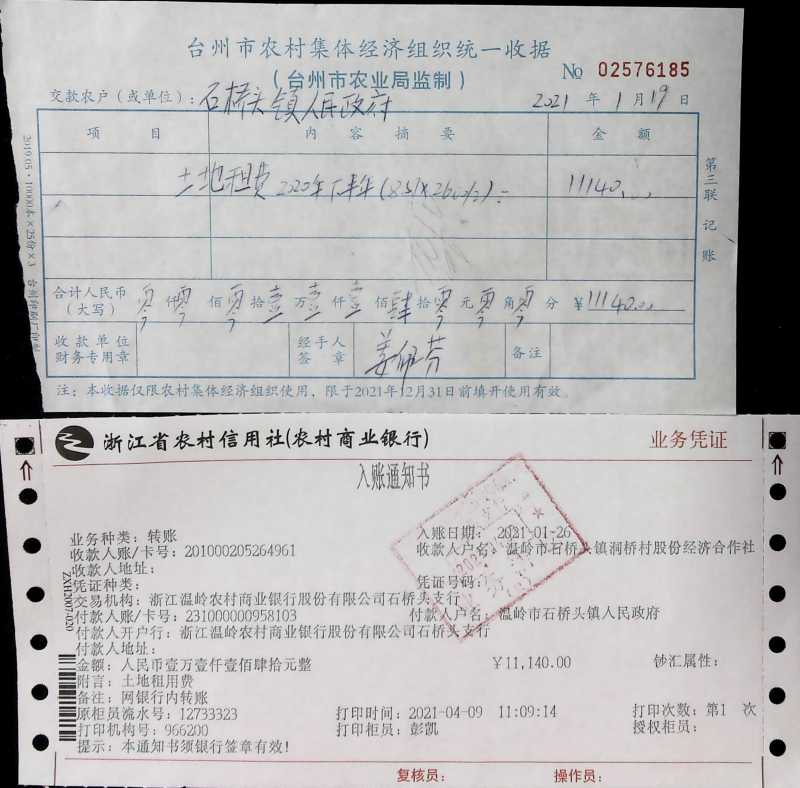 台州市农村集体经济组织统一收据
(台州市农业局监制)
No 02576185
交款农户(或单位):石桥头镇人民政府 2021 年 1 月 19 日
项 目 内 容 摘 要 金 额
土地租费 2020年下半年 11140.00
合计人民币(大写) 零 仟 零 佰 零 拾 壹 万 壹 仟 壹 佰 肆 拾 零 元 零 角 零 分 ¥11140.00
收款单位财务专用章 经手人签章 备注
注:本收据仅限农村集体经济组织使用,限于2021年12月31日前填开使用有效。
第三联 记账
浙江省农村信用社(农村商业银行) 业务凭证
入账通知书
业务种类:转账 入账日期:2021-01-26
收款人账/卡号:201000205264961 收款人户名:温岭市石桥头镇洞桥村股份经济合作社
收款人地址:
凭证种类: 凭证号码:
交易机构:浙江温岭农村商业银行股份有限公司石桥头支行
付款人账/卡号:231000000958103 付款人户名:温岭市石桥头镇人民政府
付款人开户行:浙江温岭农村商业银行股份有限公司石桥头支行
付款人地址:
金额:人民币壹万壹仟壹佰肆拾元整 ¥11,140.00 钞汇属性:
附言:土地租用费
备注:网银行内转账
原柜员流水号:12733323 打印时间:2021-04-09 11:09:14 打印次数:第1 次
打印机构号:966200 打印柜员:彭凯 授权柜员:
提示:本通知书须银行签章有效!
复核员: 操作员: